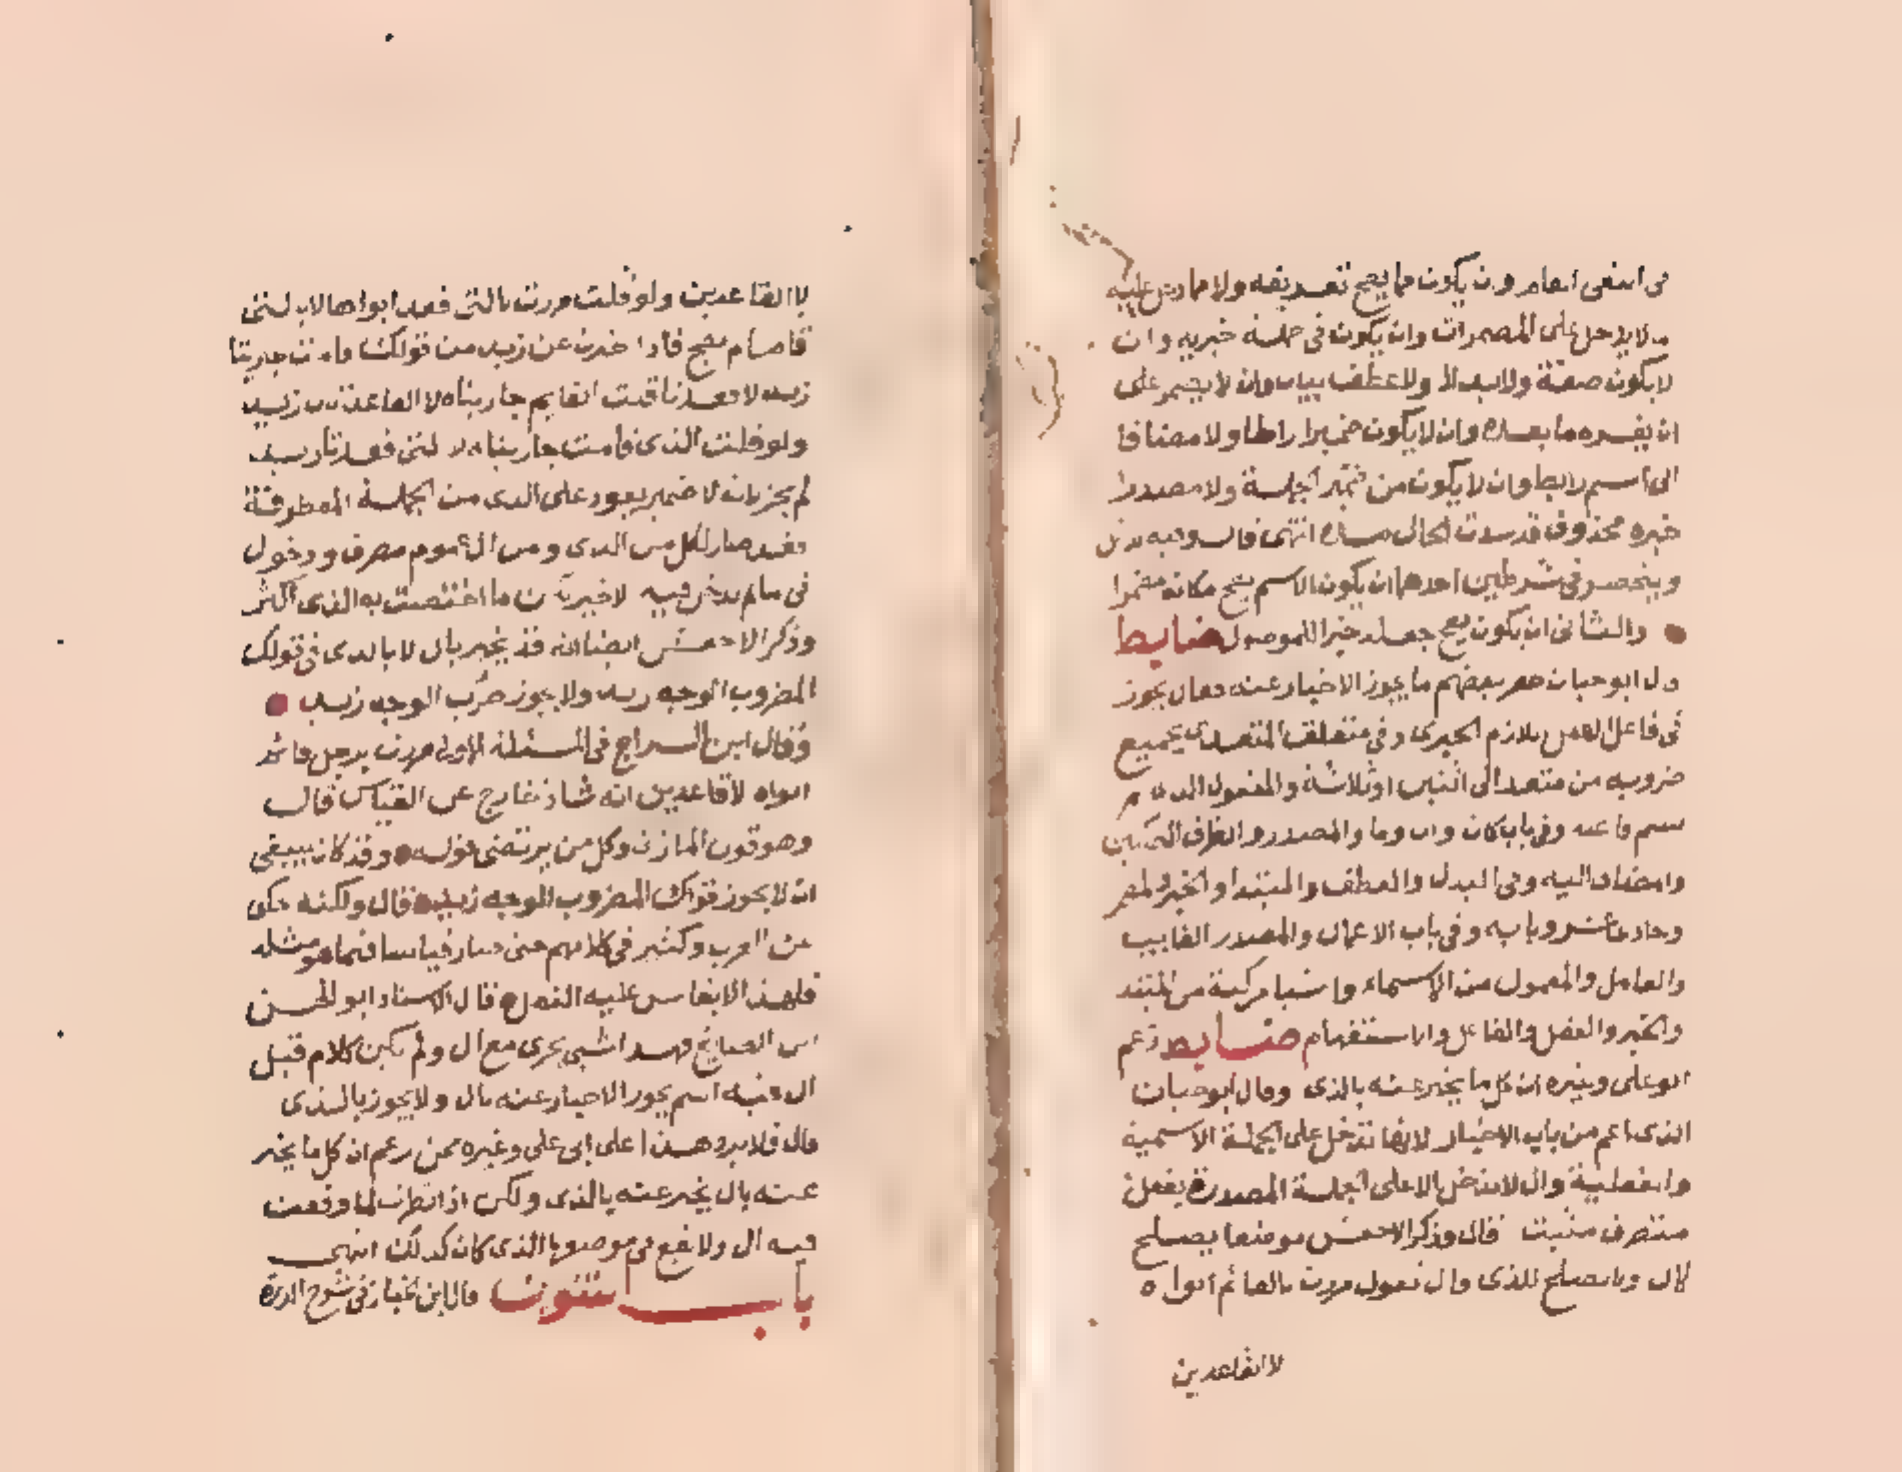 وان يكون مما يصح تعريفه ولا مما
على المضمرات وان يكون في جملة خبرية وان
لا يكون صفة ولا بدلا ولا عطف بيان وان لا يضمر على
ان يفسره ما بعده وان لا يكون ضميرا رابطا ولا مضافا
الى اسم رابط وان لا يكون من ضمير الجملة ولا مصدرا
خبره محذوف قد سدت الحال مسده انتهى قال
وينحصر في شرطين احدهما ان يكون الاسم يصح مكانه مضمرا
والثاني ان يكون يصح جعله خبرا للموصول ضابط
ابو حيان حصر بعضهم ما يجوز الاخبار عنه فقال يجوز
في فاعل الفعل اللازم الخبري وفي متعلقات المتعدي بجميع
ضروبه من متعد الى اثنين او ثلاثة والمفعول الذي لم
يسم فاعله وفي باب كان وان وما والمصدر والظرف المتمكنين
والمضاف اليه وفي البدل والعطف والمبتدا والخبر المضمر
وحادي عشر وبابه وفي باب الاعمال والمصدر النايب
والعامل والمعمول من الاسماء واشيا مركبة من المبتدا
والخبر والفعل والفاعل والاستفهام ضابط زعم
ابو على وغيره ان كل ما يخبر عنه بالذي وقال ابو حيان
الذي اعم من باب الاخبار لانها تدخل على الجملة الاسمية
والفعلية وال لا تدخل الا على الجملة المصدرة بفعل
متصرف مثبت قال وذكر الاخفش موضعا يصلح
لال ولا يصلح للذي قال تقول مررت بالقائم ابواه
لا القاعدين
لا القاعدين ولو قلت مررت بالتي قعد ابواها لا التي
قاما لم يصح فاذا اخبرت عن زيد من قولك قامت جاريتا
زيد لا قعدتا قلت القايم جاريتاه لا القاعدتان زيد
ولو قلت الذي قامت جاريتاه لا التي قعدتا زيد
لم يجز لانه لا ضمير يعود على الذي من الجملة المعطوفة
في ما لم يدخل فيه لا خير ان ما اختصت به الذي اكثر
وذكر الاخفش ايضا انه قد يخبر بال لا بالذي في قولك
المضروب الوجه زيد ولا يجوز ضرب الوجه زيد
وقال ابن السراج في المسئلة الاولى مررت برجل قائم
ابواه لا قاعدين انه شاذ خارج عن القياس قال
وهو قول المازني وكل من يرتضى قوله وقد كان ينبغي
ان لا يجوز قولك المضروب الوجه زيد قال ولكنه حكى
عن العرب وكثير في كلامهم حتى صار قياسا فيما هو مثله
فلهذا لا يقاس عليه الفعل قال الاستاذ ابو الحسن
ابن الصايغ فهذا شي يجري مع ال ولم يكن كلام قبل
ال فيه اسم يجوز الاخبار عنه بال ولا يجوز بالذي
قال فلا يرد هذا على ابي على وغيره ممن زعم ان كل ما يخبر
عنه بال يخبر عنه بالذي ولكن اذا نظرت لما وقعت
فيه ال ولا يقع في موضعها الذي كان كذلك انتهى
باب التنوين قال ابن الخباز في شرح الدرة